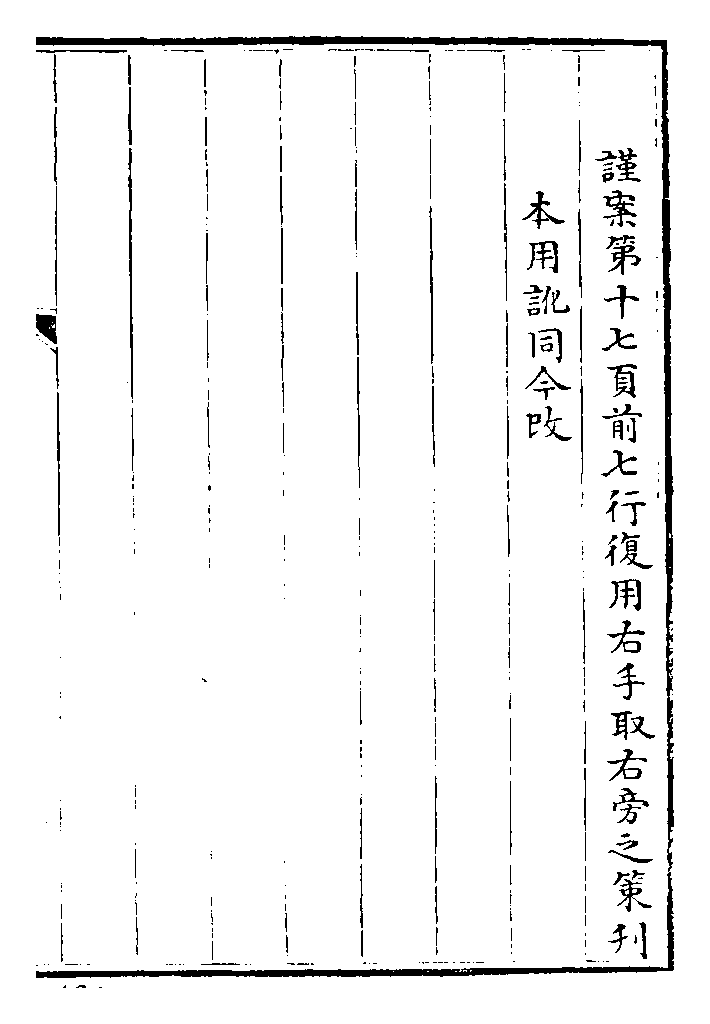 謹案第十七頁前七行復用右手取右旁之策刋
本用訛同今改